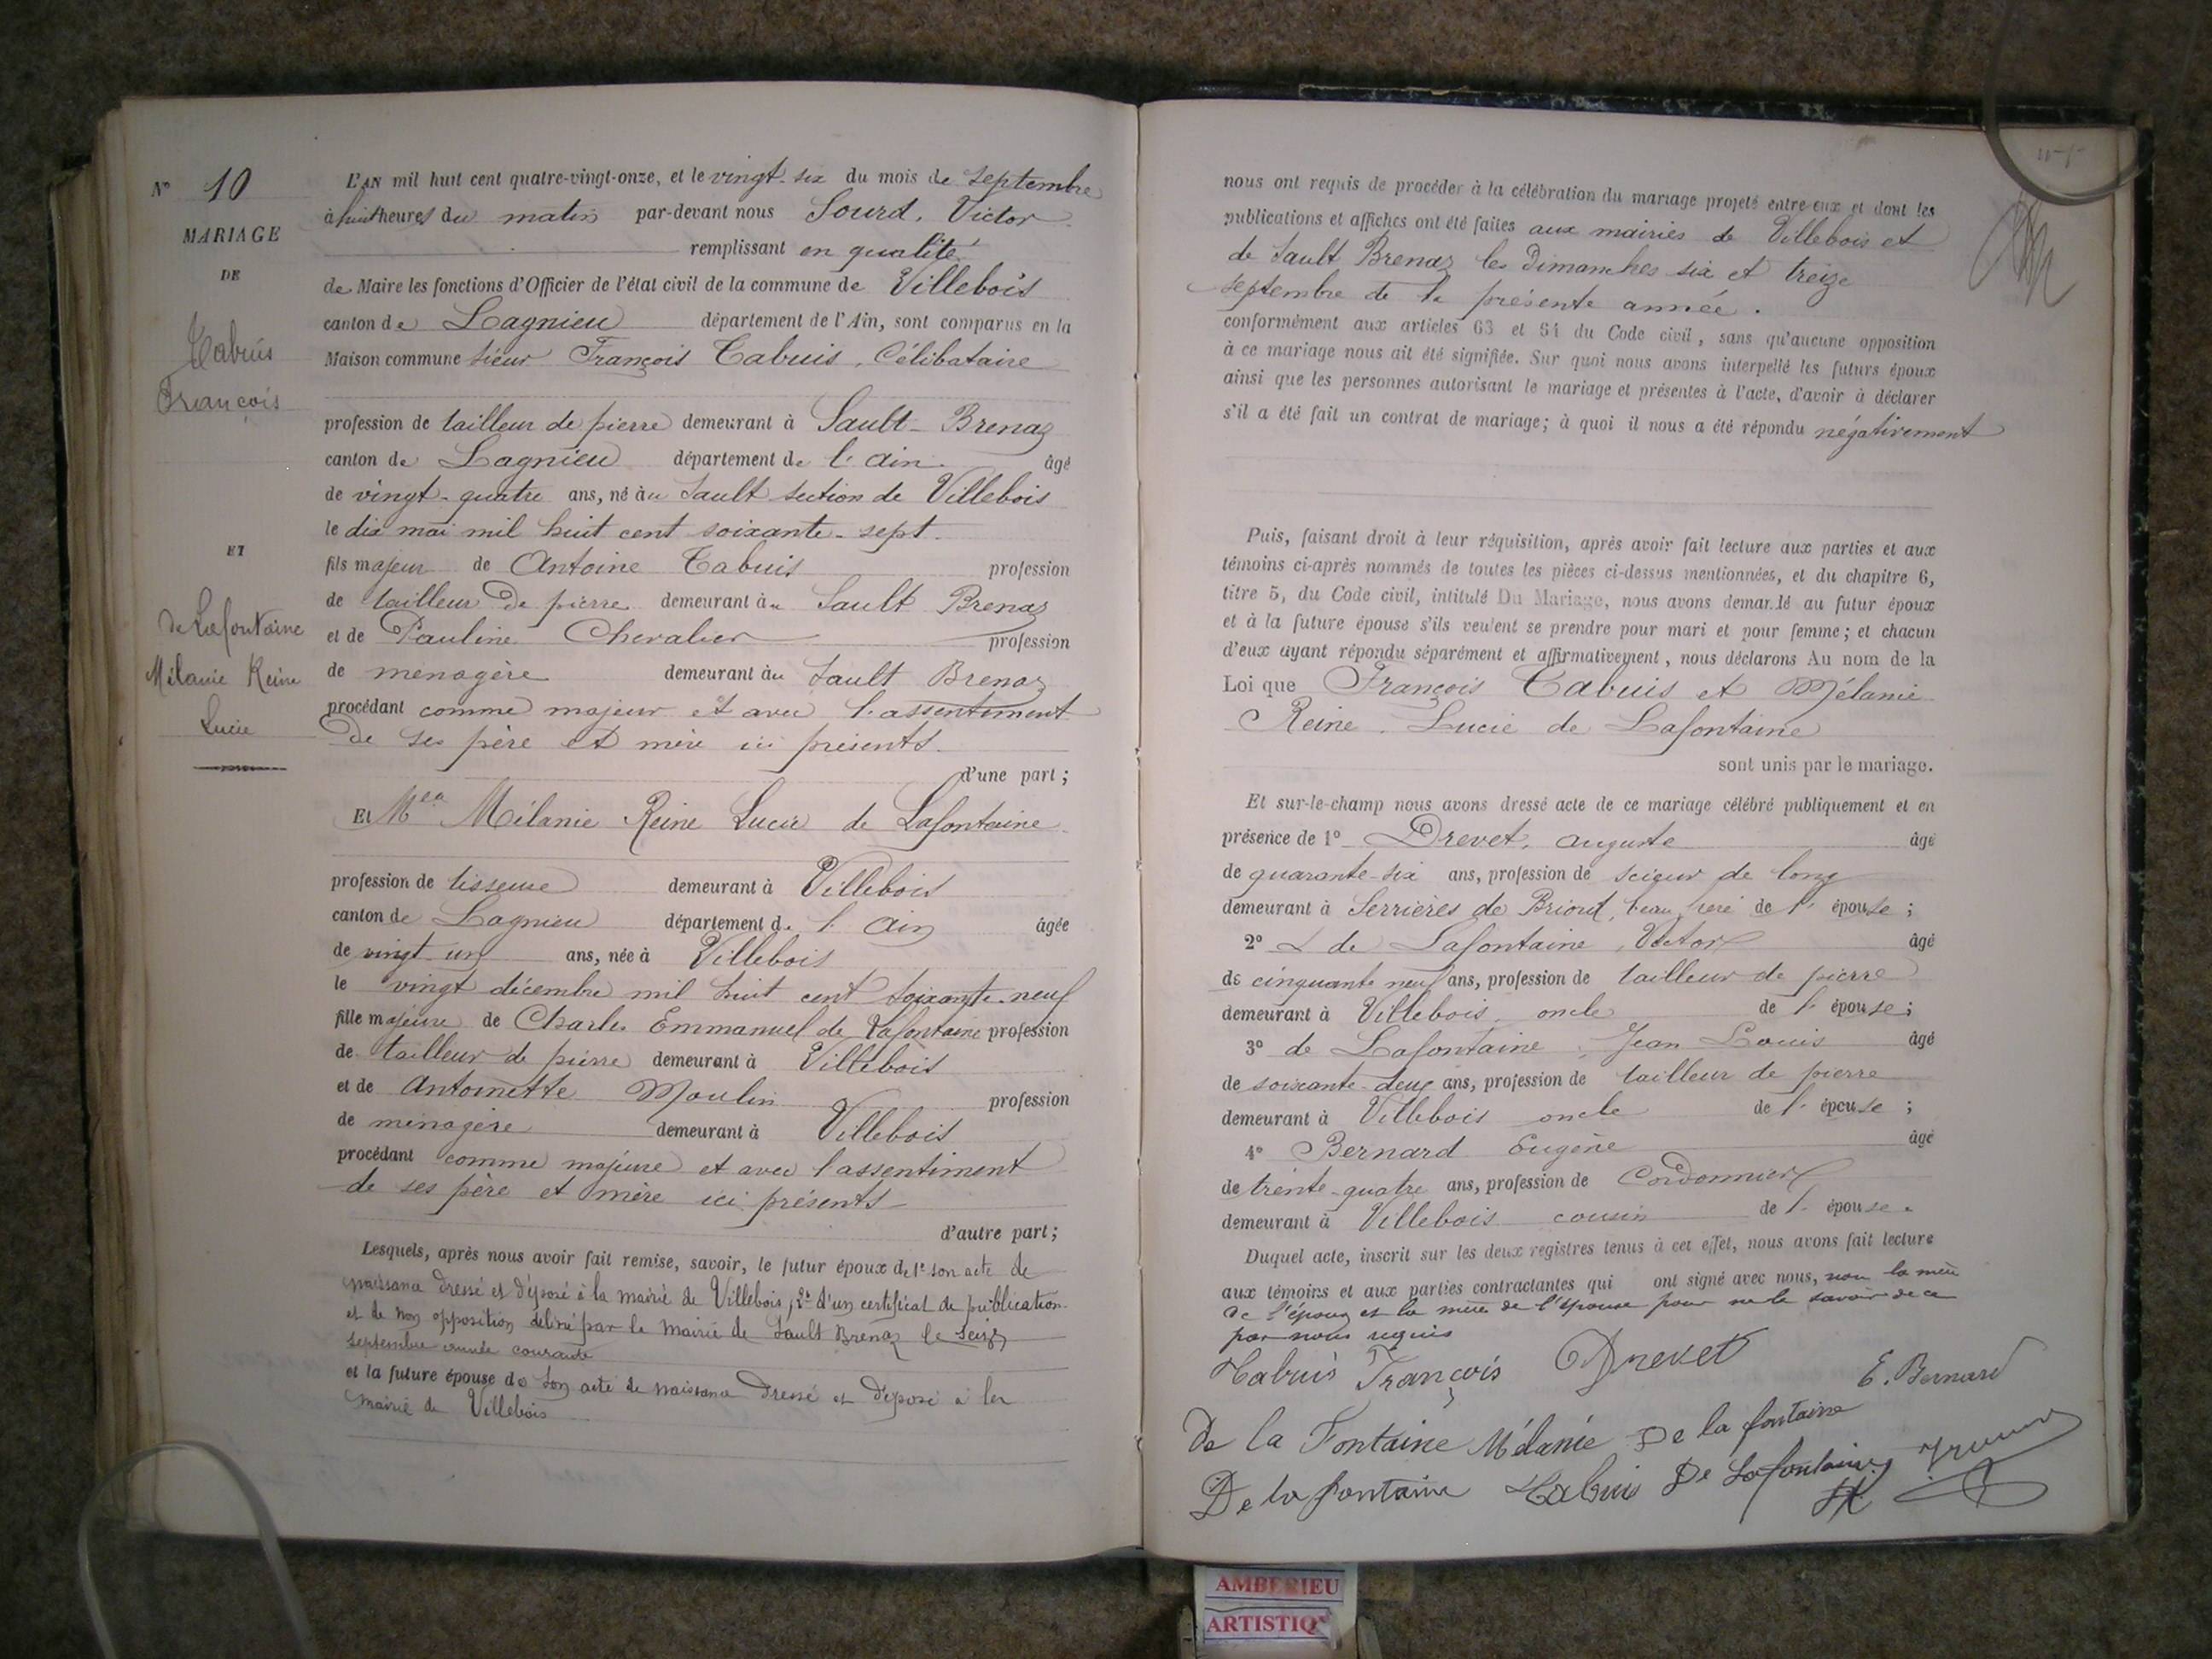 N° 10
MARIAGE
DE
Tabuis
François
ET
de Lafontaine
Mélanie Reine
Lucie
L'AN mil huit cent quatre-vingt-onze, et le vingt-six du mois de septembre
à huit heures du matin par-devant nous Sourd, Victor
remplissant en qualité
de Maire les fonctions d'Officier de l'état civil de la commune de Villebois
canton de Lagnieu département de l'Ain, sont comparus en la
Maison commune sieur François Tabuis, Célibataire
profession de tailleur de pierre demeurant à Sault-Brenaz
canton de Lagnieu département de l'ain âgé
de vingt-quatre ans, né au Sault section de Villebois
le dix mai mil huit cent soixante-sept.
fils majeur de Antoine Tabuis profession
de tailleur de pierre demeurant au Sault Brenaz
et de Pauline Chevalier profession
de ménagère demeurant au Sault Brenaz
procédant comme majeur et avec l'assentiment
de ses père et mère ici présents.
d'une part;
Et Mlle Mélanie Reine Lucie de Lafontaine
profession de tisseuse demeurant à Villebois
canton de Lagnieu département de l'Ain âgée
de vingt un ans, née à Villebois
le vingt décembre mil huit cent soixante-neuf
fille majeure de Charles Emmanuel de Lafontaine profession
de tailleur de pierre demeurant à Villebois
et de Antoinette Moulin profession
de ménagère demeurant à Villebois
procédant comme majeure et avec l'assentiment
de ses père et mère ici présents
d'autre part;
Lesquels, après nous avoir fait remise, savoir, le futur époux de 1° son acte de
naissance dressé et déposé à la mairie de Villebois, 2° d'un certificat de publication
et de non opposition délivré par la mairie de Sault Brenaz le seize
septembre année courante
et la future épouse de son acte de naissance dressé et déposé à la
mairie de Villebois
nous ont requis de procéder à la célébration du mariage projeté entre eux et dont les
publications et affiches ont été faites aux mairies de Villebois et
de Sault Brenaz les dimanches six et treize
septembre de la présente année.
conformément aux articles 63 et 64 du Code civil, sans qu'aucune opposition
à ce mariage nous ait été signifiée. Sur quoi nous avons interpellé les futurs époux
ainsi que les personnes autorisant le mariage et présentes à l'acte, d'avoir à déclarer
s'il a été fait un contrat de mariage; à quoi il nous a été répondu négativement
Puis, faisant droit à leur réquisition, après avoir fait lecture aux parties et aux
témoins ci-après nommés de toutes les pièces ci-dessus mentionnées, et du chapitre 6,
titre 5, du Code civil, intitulé Du Mariage, nous avons demandé au futur époux
et à la future épouse s'ils veulent se prendre pour mari et pour femme; et chacun
d'eux ayant répondu séparément et affirmativement, nous déclarons Au nom de la
Loi que François Tabuis et Mélanie
Reine Lucie de Lafontaine
sont unis par le mariage.
Et sur-le-champ nous avons dressé acte de ce mariage célébré publiquement et en
présence de 1° Drevet, auguste âgé
de quarante-six ans, profession de scieur de long
demeurant à Serrières de Briord, beau frère de l'épouse;
2° de Lafontaine, Victor âgé
de cinquante neuf ans, profession de tailleur de pierre
demeurant à Villebois, oncle de l'épouse;
3° de Lafontaine, Jean Louis âgé
de soixante-deux ans, profession de tailleur de pierre
demeurant à Villebois oncle de l'épouse;
4° Bernard Eugène âgé
de trente-quatre ans, profession de Cordonnier
demeurant à Villebois cousin de l'épouse.
Duquel acte, inscrit sur les deux registres tenus à cet effet, nous avons fait lecture
aux témoins et aux parties contractantes qui ont signé avec nous, non la mère
de l'époux et la mère de l'épouse pour ne le savoir de ce
par nous requis
Tabuis François Drevet
E. Bernard
De la Fontaine Mélanie De la fontaine
De la fontaine Tabuis De Lafontaine
AMBERIEU
ARTISTIQ